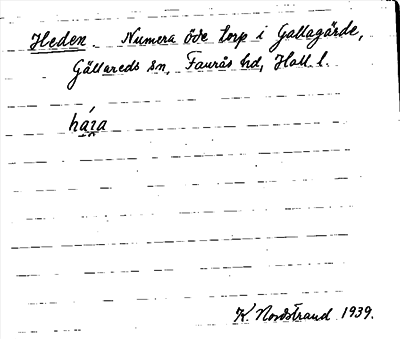 Heden. Numera öde torp i Gallagärde,
Gällareds sn, Faurås hd, Hall. l.
háɪa
K. Nordstrand 1939.